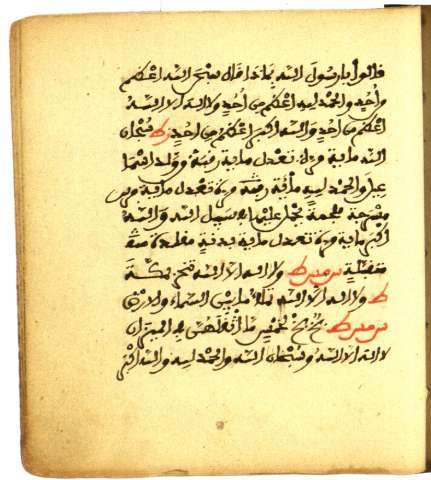 قالوا يا رسول الله بماذا قال سبحن الله اعظم
من احد والحمد لله اعظم من احد ولا اله الا الله
اعظم من احد والله اكبر اعظم من احد سبحان
الله ماية مرة تعدل ماية رقبة من ولد اسما
عيل والحمد لله ماية مرة تعدل ماية فرس
مسرجة ملجمة يحمل عليها في سبيل الله والله
اكبر ماية مرة تعدل ماية بدنة مقلدة
متقبلة ولا اله الا الله بمكة
ولا اله الا الله تملأ ما بين السماء والارض
بخ بخ لخمس ما اثقلهن في الميزان
لا اله الا الله وسبحان الله والحمد لله والله اكبر